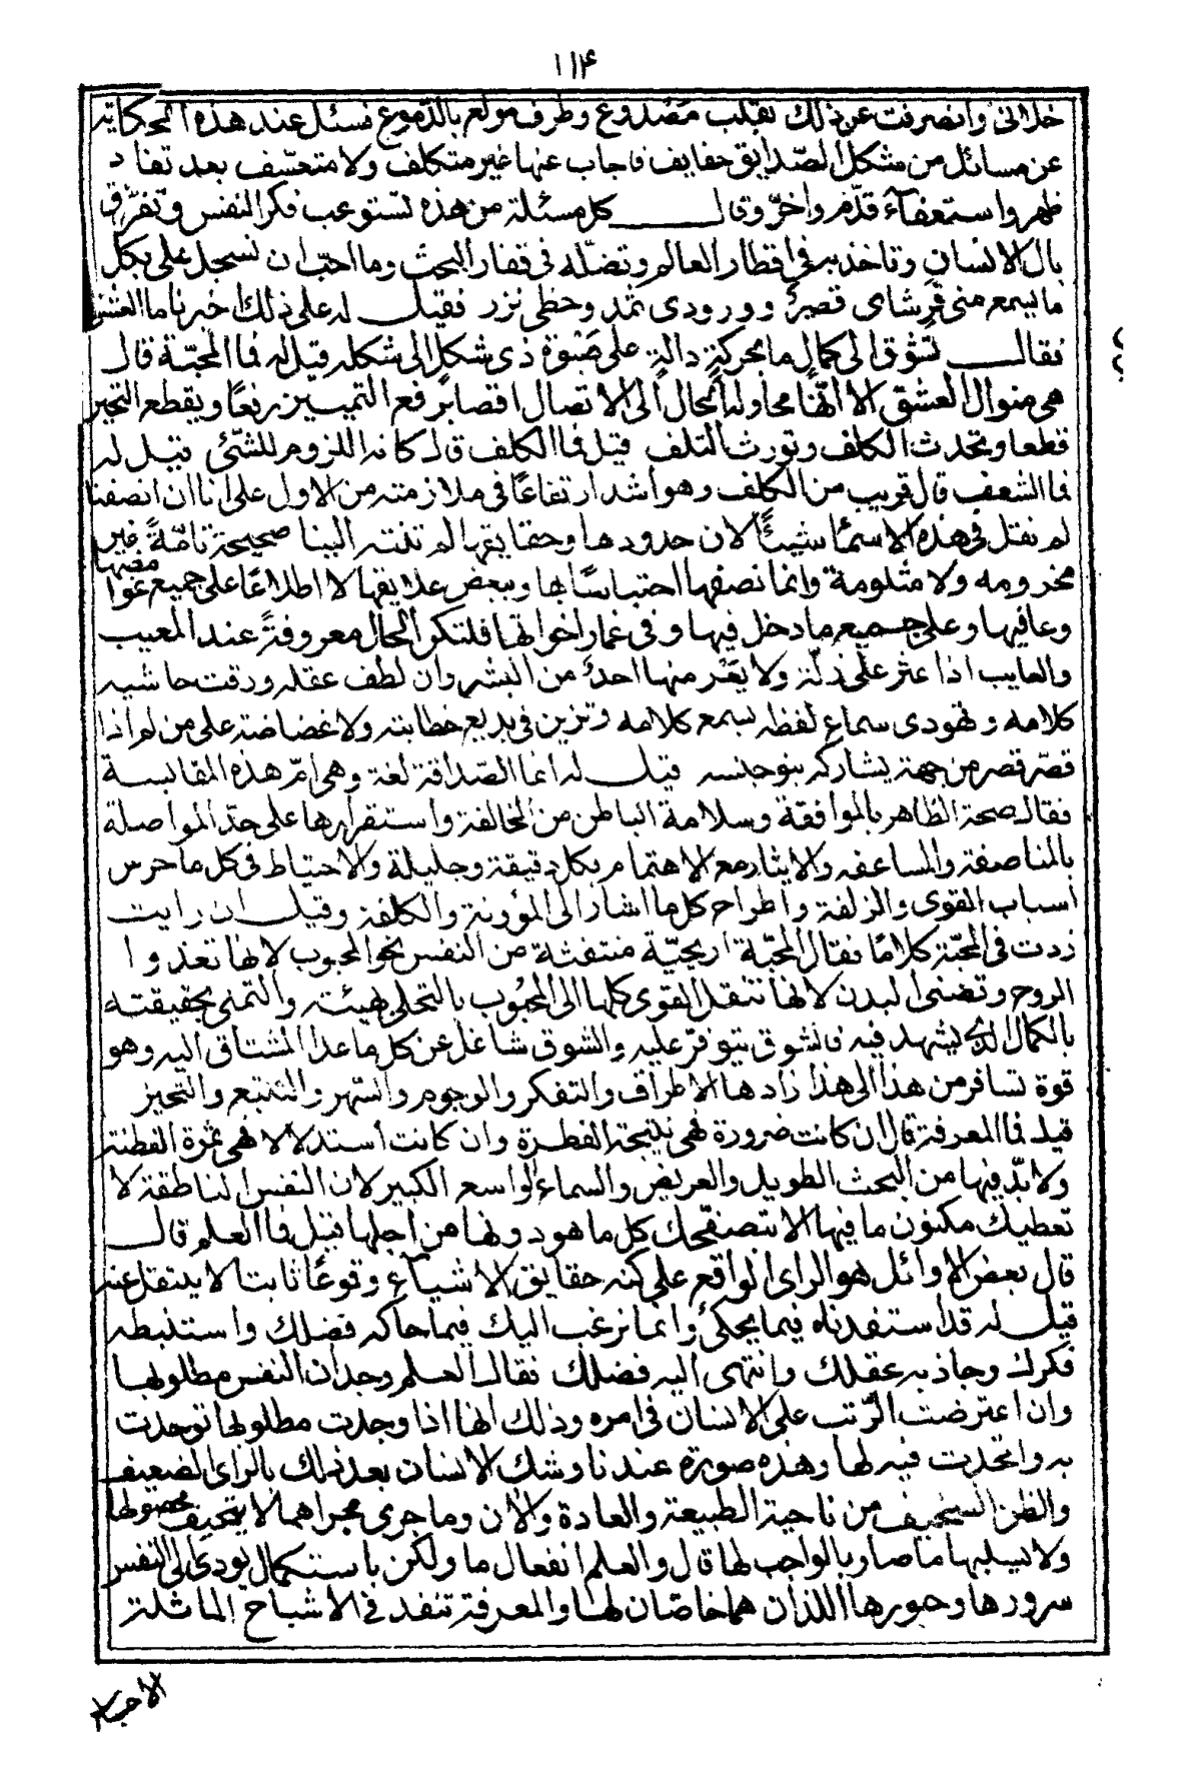 ١١۴
خلالى وانصرفت عن ذلك بقلب مصدوع وطرف مولع بالدّموع فسئل عند هذه الحكاية
عن مسائل من مشكل الصّدايق حقايق فاجاب عنها غير متكلف ولا متعسّف بعد تفاد
ظهر واستعفآء قدّم واخّر وقال كل مسئلة من هذه تستوعب فكر النفس وتفرّق
بال الانسان وتاخذ به فى اقطار العالم وتضلّه فى قفار البحث وما احبّ ان تسجل على بكل
ما يسمع منى فرشاى قصير وورودى ثمد وحظى نزر فقيل له على ذلك خبرنا ما العشق
فقال تشوق الى كمال ما بحركة دالة على صبوة ذى شكل الى شكله قيل له فما المحبّة قال
هى منوال العشق الا انّها محاولة لحال الى الاتصال اقصا برفع التمييز رفعًا ويقطع التحير
قطعا وتحدث الكلف وتورث التلف قيل فما الكلف قال كانه اللزوم للشّئ قيل له
فما الشعف قال قريب من الكلف وهو اشد ارتفاعًا فى ملازمته من الاول على انا ان انصفنا
لم نقل فى هذه الاسمآ شيئًا لان حدودها وحقايقها لم تنته الينا صحيحة تامّةً غير
مخرومه ولا مثلومة وانما نصفها احتباسًا بها وببعض علايقها لا اطلاعًا على جميع غوا
وعافيها وعلى جميع ما دخل فيها وفى غمار اخواتها فلتكن الحال معروفةً عند المعيب
والعايب اذا عثر على زلّة ولا يعر منها احد من البشر وان لطف عقله ورقت حاشيه
كلامه وتهودى سماع لفظه ليسمع كلامه وتزين فى بديع خطابته ولا غضاضة على من لم اذا
قصّر قصر من جهة يشاركه بنو جنسه قيل له انما الصّداقة لغة وهى امّ هذه المقابسة
فقال صحة الظاهر بالموافقة وسلامة الباطن من المخالفة واستقرارها على حدّ المواصلة
بالمناصفة والمساعفه والايثار مع الاهتمام بكل دقيقة وجليلة والاحتياط فى كل ما حرس
اسباب القوى والزلفة واطراح كل ما اشار الى المؤونة والكلفة وقيل ان رايت
زدت فى المحبّة كلامًا فقال المحبّة اريحيّة منتفثة من النفس نحو المحبوب لانها تعذوا
الروح وتضنى البدن لانها تنقل القوى كلها الى المحبوب بالتحلى بهيئته والتمنى بحقيقته
بالكمال الذى يشهد فيه فالشوق يتوفر عليه والشوق شاغل عن كل ما عدا المشتاق اليه وهو
قوة تسافر من هذا الى هذا زادها الاطراف والتفكر والوجوم والسّهر والتتبع والتحيز
قيل فما المعرفة قال ان كانت ضرورة فهى نتيجة الفطرة وان كانت استدلالا فهى ثمرة الفطنة
ولا بدّ فيها من البحث الطويل والعريض والسماء الواسع الكبير لان النفس الناطقة لا
تعطيك مكنون ما فيها الا بتصفّحك كل ما هو دونها من اجلها قيل فما العلم قال
قال بعض الاوائل هو الراى الواقع على كنه حقايق الاشيآء وقوعًا ثابتا لا ينتقل عنه
قيل له قد استفدناه فيما يحكى وانما نرغب اليك فيما حاكه فضلك واستنبطه
فكرك وجاذ به عقلك وانتهى اليه فضلك فقال العلم وجدان النفس مطلوبها
وان اعترضت الرّتب على الانسان فى امره وذلك انها اذا وجدت مطلوبها توحدت
به واتحدت فيه لها وهذه صورة عندنا وشك الانسان بعد ذلك بالراى الضعيف
والظن السخيف من ناحية الطبيعة والعادة والان وما جرى مجراهما لا يتحيف محصولها
ولا يسلبها ما صار بالواجب لها قال والعلم انفعال ما ولكن باستكمال يودى الى النفس
سرورها وحبورها اللذان هما خاصّان لها والمعرفة تنفد فى الاشباح الماثلة
الاجسام